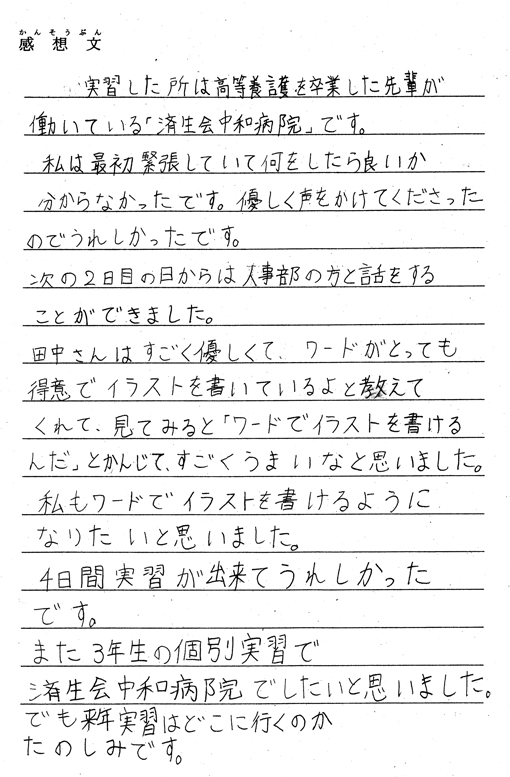 かんそうぶん
感想文
実習した所は高等養護を卒業した先輩が
働いている「済生会中和病院」です。
私は最初緊張していて何をしたら良いか
分からなかったです。優しく声をかけてくださった
のでうれしかったです。
次の2日目の日からは人事部の方と話をする
ことができました。
田中さんはすごく優しくて、ワードがとっても
得意でイラストを書いているよと教えて
くれて、見てみると「ワードでイラストを書ける
んだ」とかんじて、すごくうまいなと思いました。
私もワードでイラストを書けるように
なりたいと思いました。
4日間実習が出来てうれしかった
です。
また3年生の個別実習で
済生会中和病院でしたいと思いました。
でも来年実習はどこに行くのか
たのしみです。